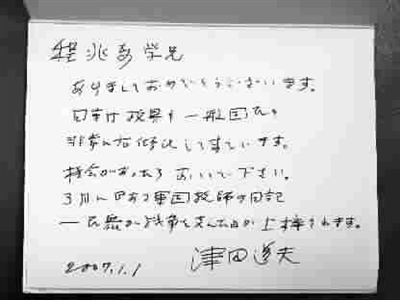 程兆奇学兄
あけましておめでとうございます。
日本は政界も一般国民も
非常に右傾化して来ています。
機会があったらおいで下さい。
3月に『ある軍国教師の日記
―民衆が戦争を支えた』が上梓されます。
2007.1.1 津田道夫